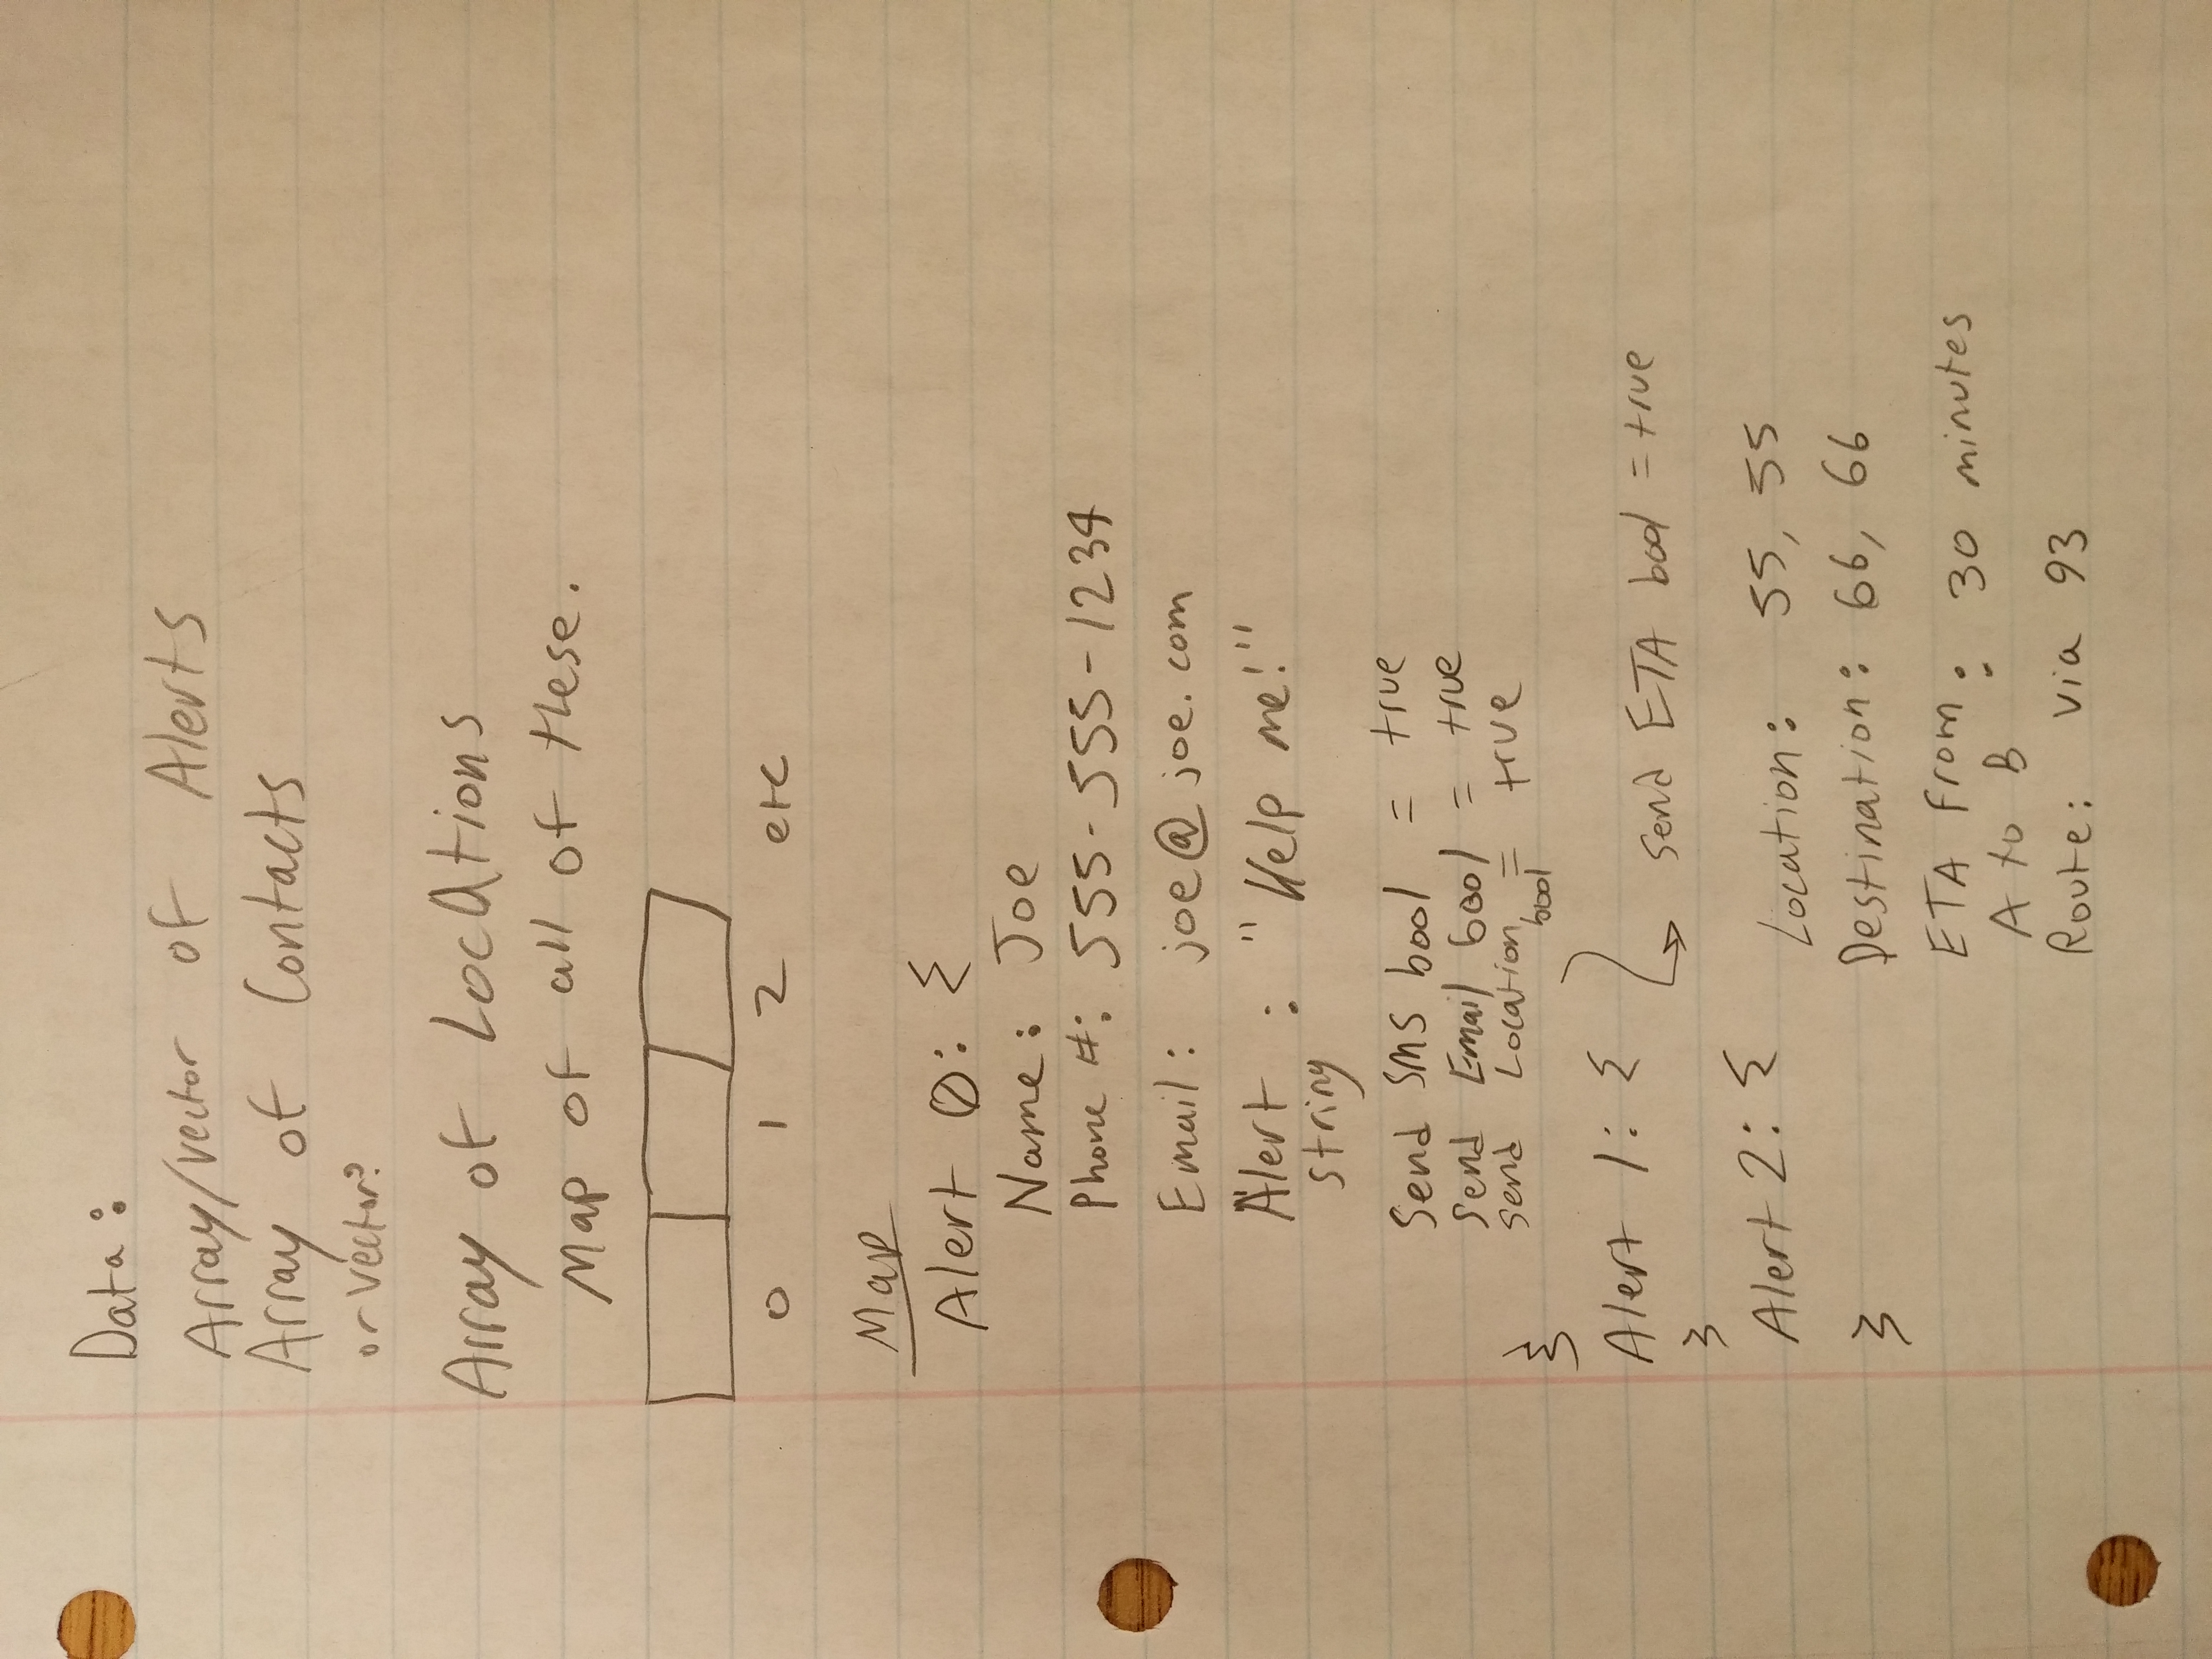 Data:
Array/vector of Alerts
Array of Contacts
or vector?
Array of Locations
Map of all of these.
0 1 2 etc
Map
Alert 0: {
Name: Joe
Phone #: 555-555-1234
Email: joe@joe.com
Alert : "Help me!"
string
Send SMS bool = true
Send Email bool = true
send Location = true
bool
}
Alert 1: {
send ETA bool = true
}
Alert 2: {
Location: 55, 55
Destination: 66, 66
}
ETA from : 30 minutes
A to B
Route: via 93